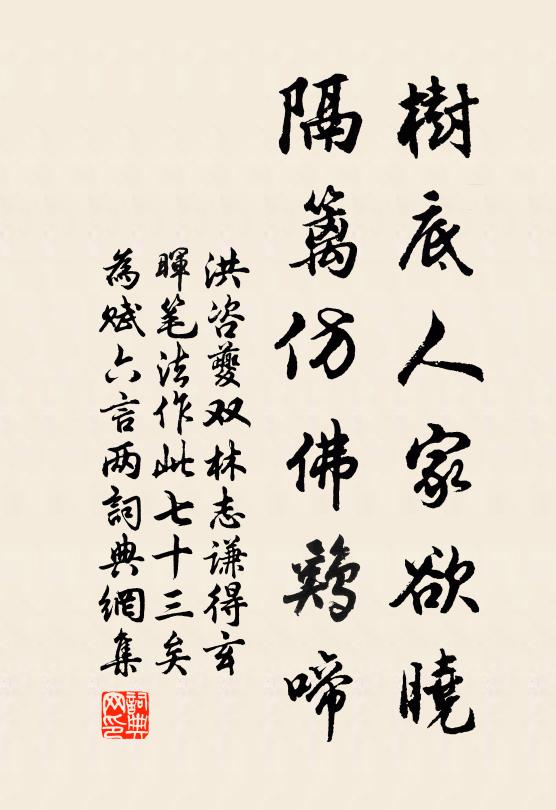 樹底人家欲曉
隔籬仿佛鷄啼
洪咨夔双林志谦得玄
暉笔法作此七十三矣
為賦六言兩詞典網集
詞典网印